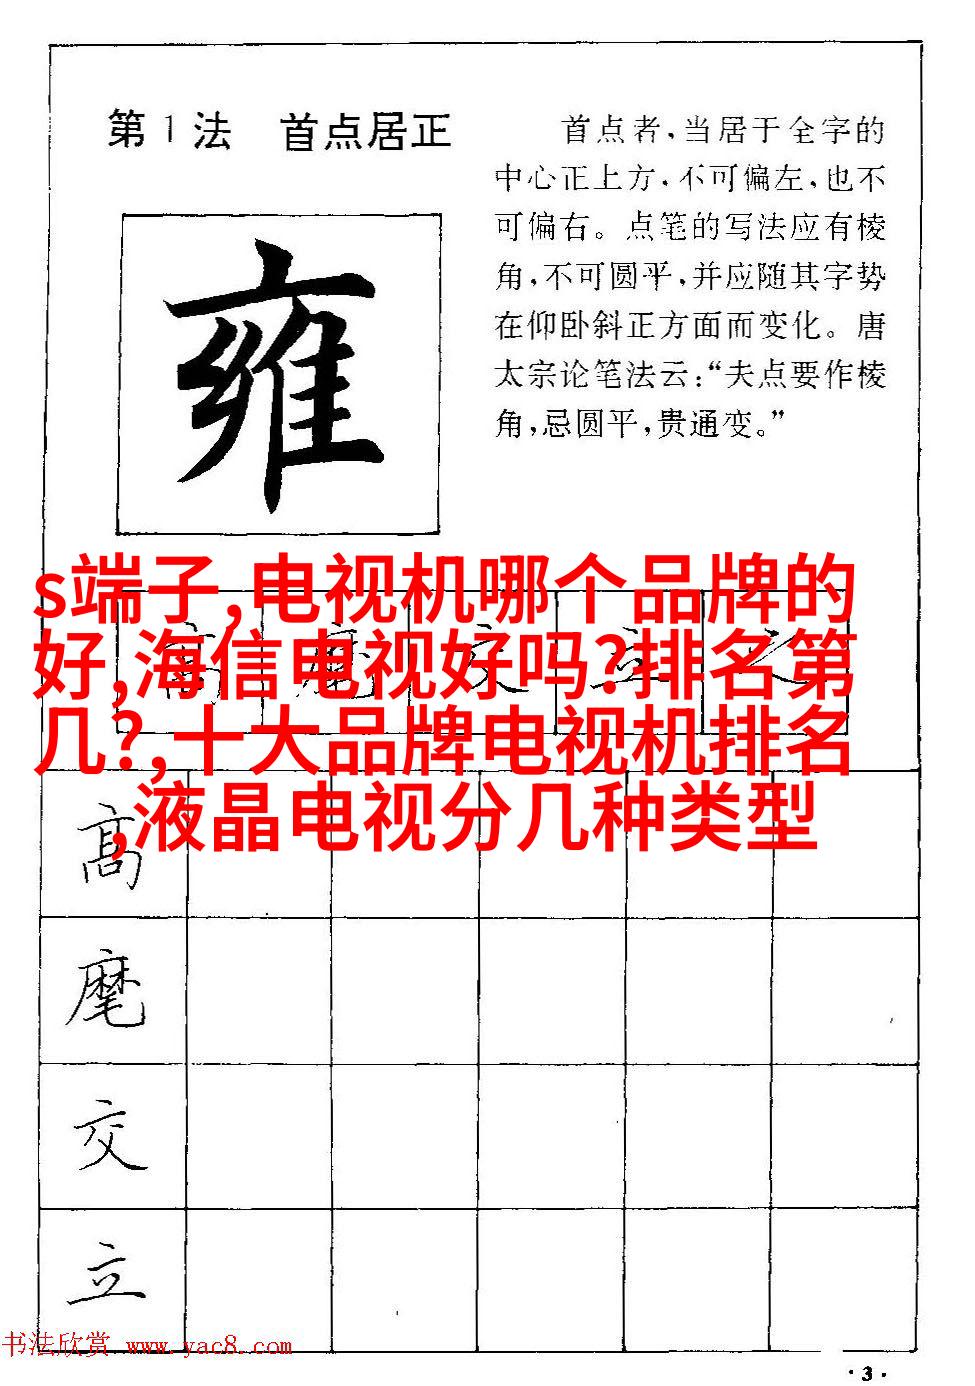 第1法 首点居正
首点者，当居于全字的
中心正上方，不可偏左，也不
可偏右。点笔的写法应有棱
角，不可圆平，并应随其字势
在仰卧斜正方面而变化。唐
太宗论笔法云：“夫点要作棱
角，忌圆平，贵通变。”
雍
s端子,电视机哪个品牌的
好,海信电视好吗?排名第
几?,十大品牌电视机排名
,液晶电视分几种类型
高
麾
交
立
书法欣赏 www.yac8.com
·3·